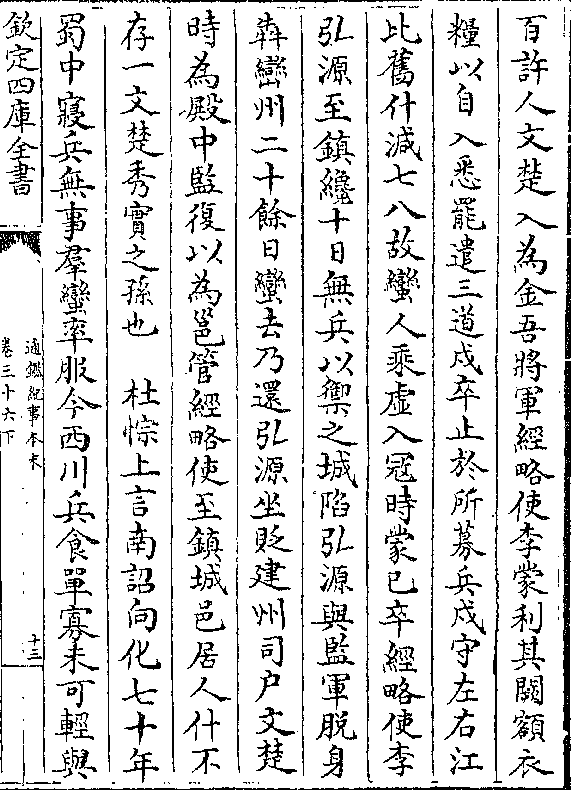 百許人文楚入為金吾將軍經略使李蒙利其闕額衣
糧以自入悉罷遣三道戍卒止於所募兵戍守左右江
比舊什減七八故蠻人乘虛入冦時蒙已卒經略使李
弘源至鎮纔十日無兵以禦之城陷弘源與監軍脱身
犇巒州二十餘日蠻去乃還弘源坐貶建州司户文楚
時為殿中監復以為邕管經略使至鎮城邑居人什不
存一文楚秀實之孫也　杜悰上言南詔向化七十年
蜀中寢兵無事羣蠻率服今西川兵食單寡未可輕與
欽定四庫全書
通鑑紀事本末
卷三十六下
十三